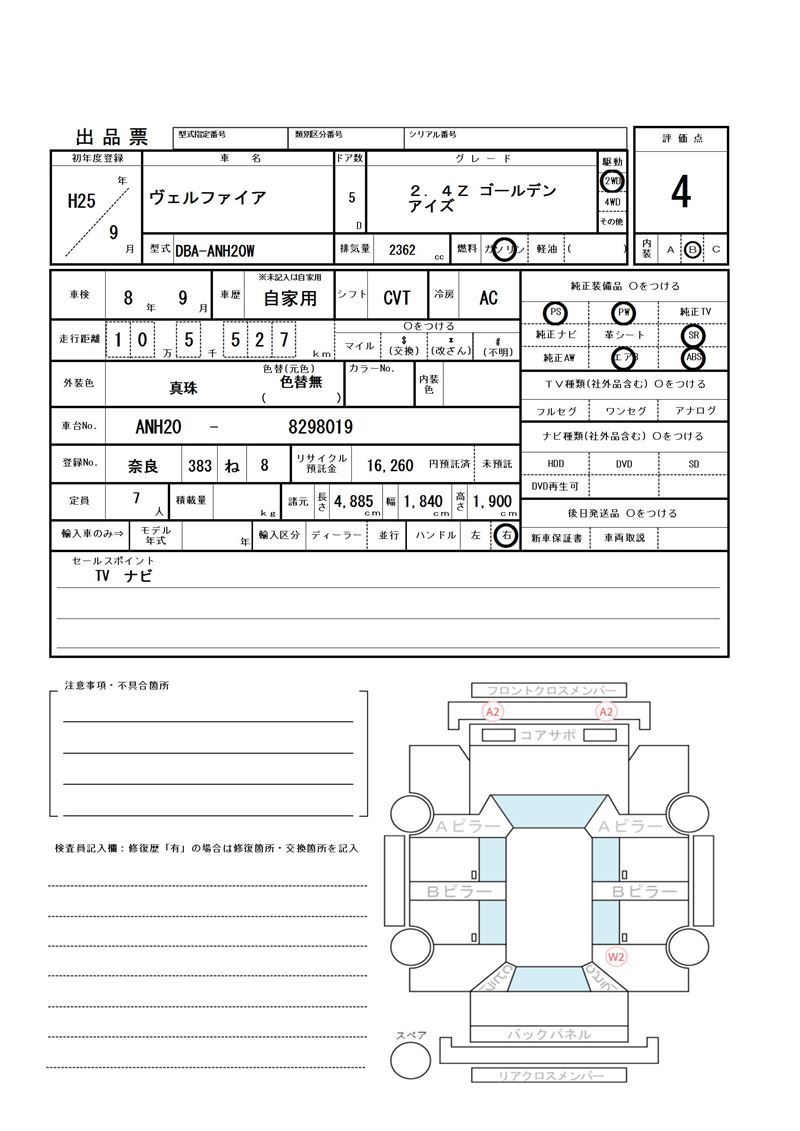 出品票 型式指定番号 類別区分番号 シリアル番号
評価点
4
内装 A B C
初年度登録 車名 ドア数 グレード 駆動
H25 年 9 月
ヴェルファイア
5 D
2．4Z ゴールデン
アイズ
2WD
4WD
その他
型式 DBA-ANH20W 排気量 2362 cc 燃料 ガソリン 軽油 ( )
車検 8 年 9 月 車歴 ※未記入は自家用 自家用 シフト CVT 冷房 AC
走行距離 1 0 万 5 千 5 2 7 km
〇をつける
マイル $ (交換) * (改ざん) # (不明)
外装色 真珠 色替(元色) 色替無 ( ) カラーNo. 内装色
車台No. ANH20 - 8298019
登録No. 奈良 383 ね 8 リサイクル預託金 16,260 円預託済 未預託
定員 7 人 積載量 kg 諸元 長さ 4,885 cm 幅 1,840 cm 高さ 1,900 cm
輸入車のみ⇒ モデル年式 年 輸入区分 ディーラー 並行 ハンドル 左 右
純正装備品 〇をつける
PS PW 純正TV
純正ナビ 革シート SR
純正AW エアB ABS
TV種類(社外品含む) 〇をつける
フルセグ ワンセグ アナログ
ナビ種類(社外品含む) 〇をつける
HDD DVD SD
DVD再生可
後日発送品 〇をつける
新車保証書 車両取説
セールスポイント
TV ナビ
注意事項・不具合箇所
検査員記入欄：修復歴「有」の場合は修復箇所・交換箇所を記入
フロントクロスメンバー
A2 A2
コアサポ
Aピラー Aピラー
Bピラー Bピラー
W2
Cピラー Cピラー
バックパネル
スペア
リアクロスメンバー